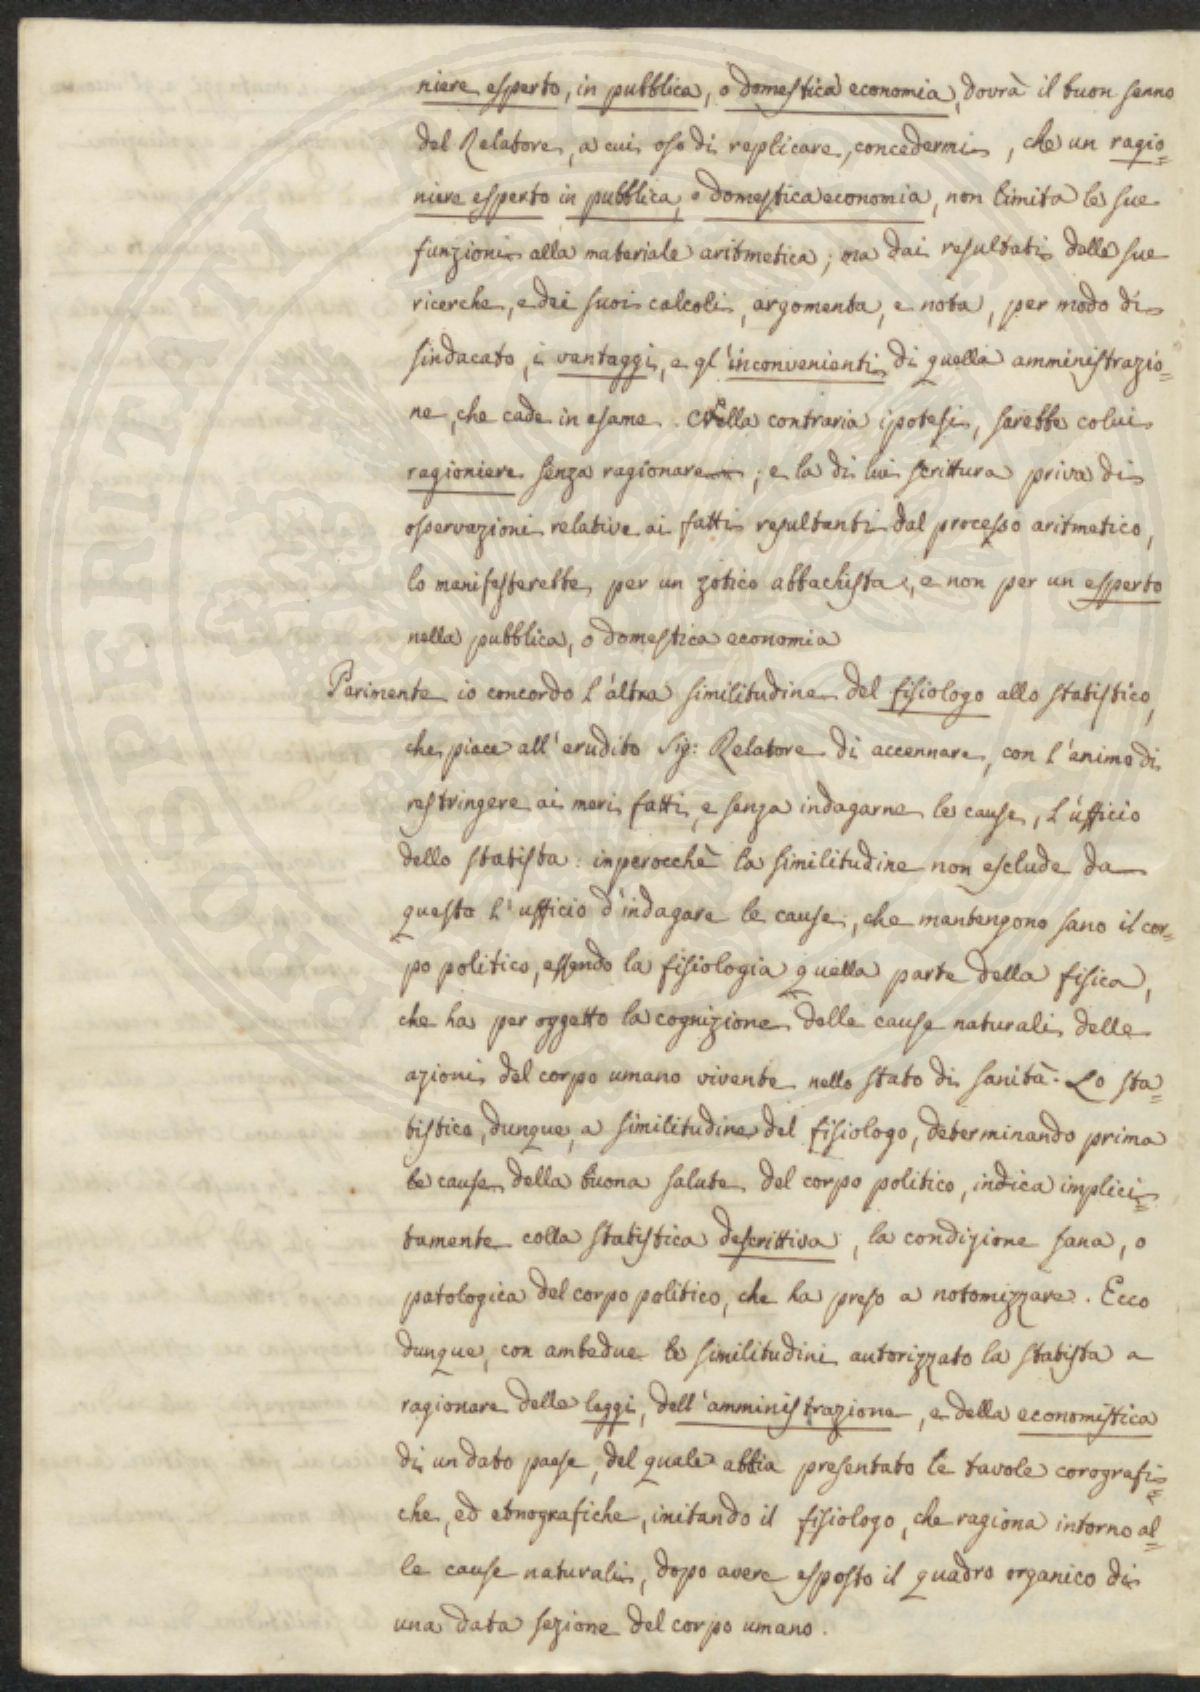 niere esperto, in pubblica, o domestica economia, dovrà il buon senno
del Relatore, a cui oso di replicare, concedermi, che un ragio=
niere esperto in pubblica, o domestica economia, non limita le sue
funzioni alla materiale aritmetica; ma dai resultati delle sue
ricerche, e dei suoi calcoli, argomenta, e nota, per modo di
sindacato, i vantaggi, e gl'inconvenienti di quella amministrazio=
ne, che cade in esame. Nella contraria ipotesi, sarebbe colui
ragioniere senza ragionare; e la di lui scrittura priva di
osservazioni relative ai fatti resultanti dal processo aritmetico,
lo manifesterebbe per un zotico abbachista, e non per un esperto
nella pubblica, o domestica economia
Parimente io concordo l'altra similitudine del fisiologo allo statistico,
che piace all'erudito Sig: Relatore di accennare, con l'animo di
restringere ai meri fatti, e senza indagarne le cause, l'ufficio
dello statista: inperocchè la similitudine non esclude da
questo l'ufficio d'indagare le cause, che mantengono sano il cor=
po politico, essendo la fisiologia quella parte della fisica,
che ha per oggetto la cognizione delle cause naturali delle
azioni del corpo umano vivente nello stato di sanità. Lo sta=
tistico, dunque, a similitudine del fisiologo, determinando prima
le cause della buona salute del corpo politico, indica implici=
tamente colla statistica descrittiva, la condizione sana, o
patologica del corpo politico, che ha preso a notomizzare. Ecco
dunque, con ambedue le similitudini autorizzato lo statista a
ragionare delle leggi, dell'amministrazione, e della economistica
di un dato paese, del quale abbia presentato le tavole corografi=
che, ed etnografiche, imitando il fisiologo, che ragiona intorno al=
le cause naturali, dopo avere esposto il quadro organico di
una data sezione del corpo umano.
PROSPERITATI